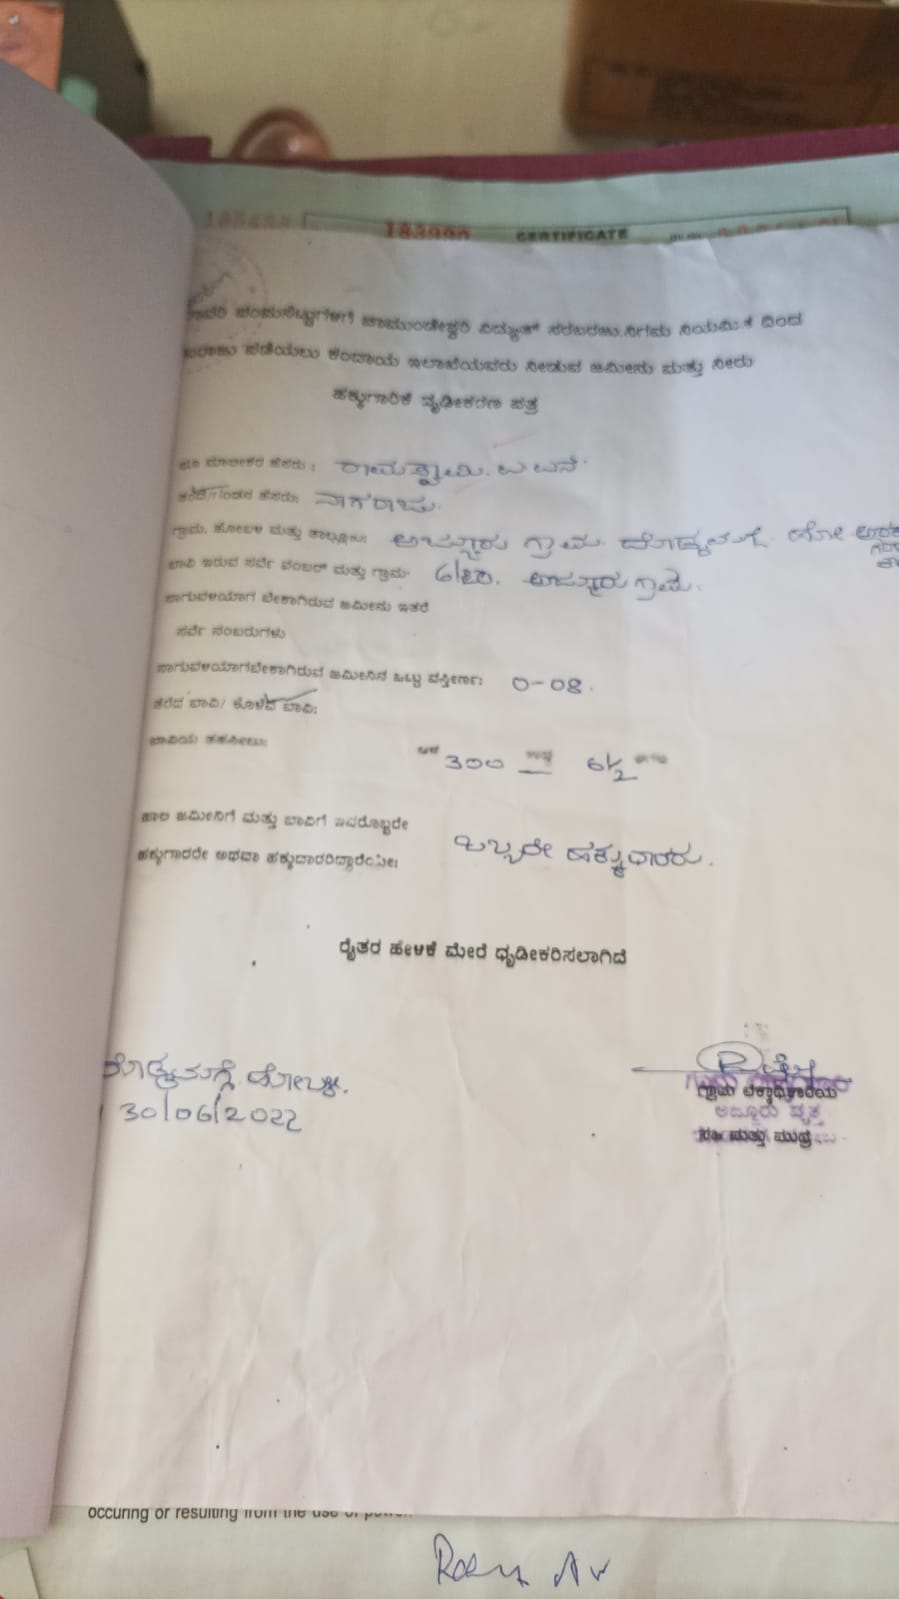 CERTIFICATE
ನೀರಾವರಿ ಪಂಪುಸೆಟ್ಟುಗಳಿಗೆ ಚಾಮುಂಡೇಶ್ವರಿ ವಿದ್ಯುತ್ ಸರಬರಾಜು ನಿಗಮ ನಿಯಮಿತ ದಿಂದ
ಪಡೆಯಲು ಕಂದಾಯ ಇಲಾಖೆಯವರು ನೀಡುವ ಜಮೀನು ಮತ್ತು ನೀರು
ಹಕ್ಕುಗಾರಿಕೆ ದೃಢೀಕರಣ ಪತ್ರ
ಮಾಲೀಕರ ಹೆಸರು: ರಾಮಸ್ವಾಮಿ.
ತಂದೆ/ಗಂಡನ ಹೆಸರು: ನಾಗರಾಜು.
ಗ್ರಾಮ, ಹೋಬಳಿ ಮತ್ತು ತಾಲ್ಲೂಕು: ಅಜ್ಜೂರು ಗ್ರಾಮ ದೊಡ್ಡಮಗ್ಗೆ ಹೋ
ಬಾವಿ ಇರುವ ಸರ್ವೆ ನಂಬರ್ ಮತ್ತು ಗ್ರಾಮ ಅಜ್ಜೂರು ಗ್ರಾಮ.
ಸಾಗುವಳಿಯಾಗ ಬೇಕಾಗಿರುವ ಜಮೀನು ಇತರೆ
ಸರ್ವೆ ನಂಬರುಗಳು
ಸಾಗುವಳಿಯಾಗಬೇಕಾಗಿರುವ ಜಮೀನಿನ ಒಟ್ಟು ವಿಸ್ತೀರ್ಣ: 0-08.
ತೆರೆದ ಬಾವಿ/ ಕೊಳವೆ ಬಾವಿ:
ಬಾವಿಯ ತಹಸೀಲು:
ಆಳ 300 6½
ಜಮೀನಿಗೆ ಮತ್ತು ಬಾವಿಗೆ ಇವರೊಬ್ಬರೇ
ಹಕ್ಕುಗಾರರೇ ಅಥವಾ ಹಕ್ಕುದಾರರಿದ್ದಾರೆಯೇ: ಒಬ್ಬರೇ ಹಕ್ಕುದಾರರು.
ರೈತರ ಹೇಳಿಕೆ ಮೇರೆ ಧೃಡೀಕರಿಸಲಾಗಿದೆ
ದೊಡ್ಡಮಗ್ಗೆ ಹೋಬಳಿ.
30/06/2022
ಗ್ರಾಮ ಲೆಕ್ಕಾಧಿಕಾರಿಯ
ಅಜ್ಜೂರು ವೃತ್ತ
ಸಹಿ ಮತ್ತು ಮುದ್ರೆ
occuring or resulting from the use of power.